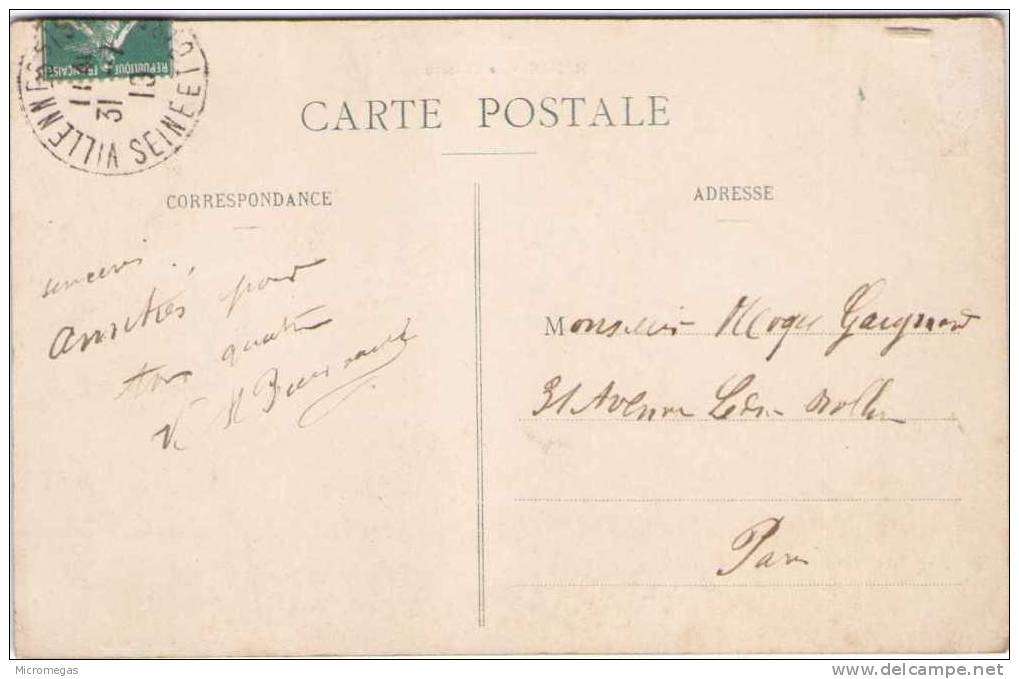 RÉPUBLIQUE FRANÇAISE
VILLENNES SEINE ET O
11
31
13
CARTE POSTALE
CORRESPONDANCE
ADRESSE
sincères
amitiés pour
tous quatre
Monsieur Roger Gaignard
31 Avenue Ledru Rollin
Paris
Micromegas
www.delcampe.net